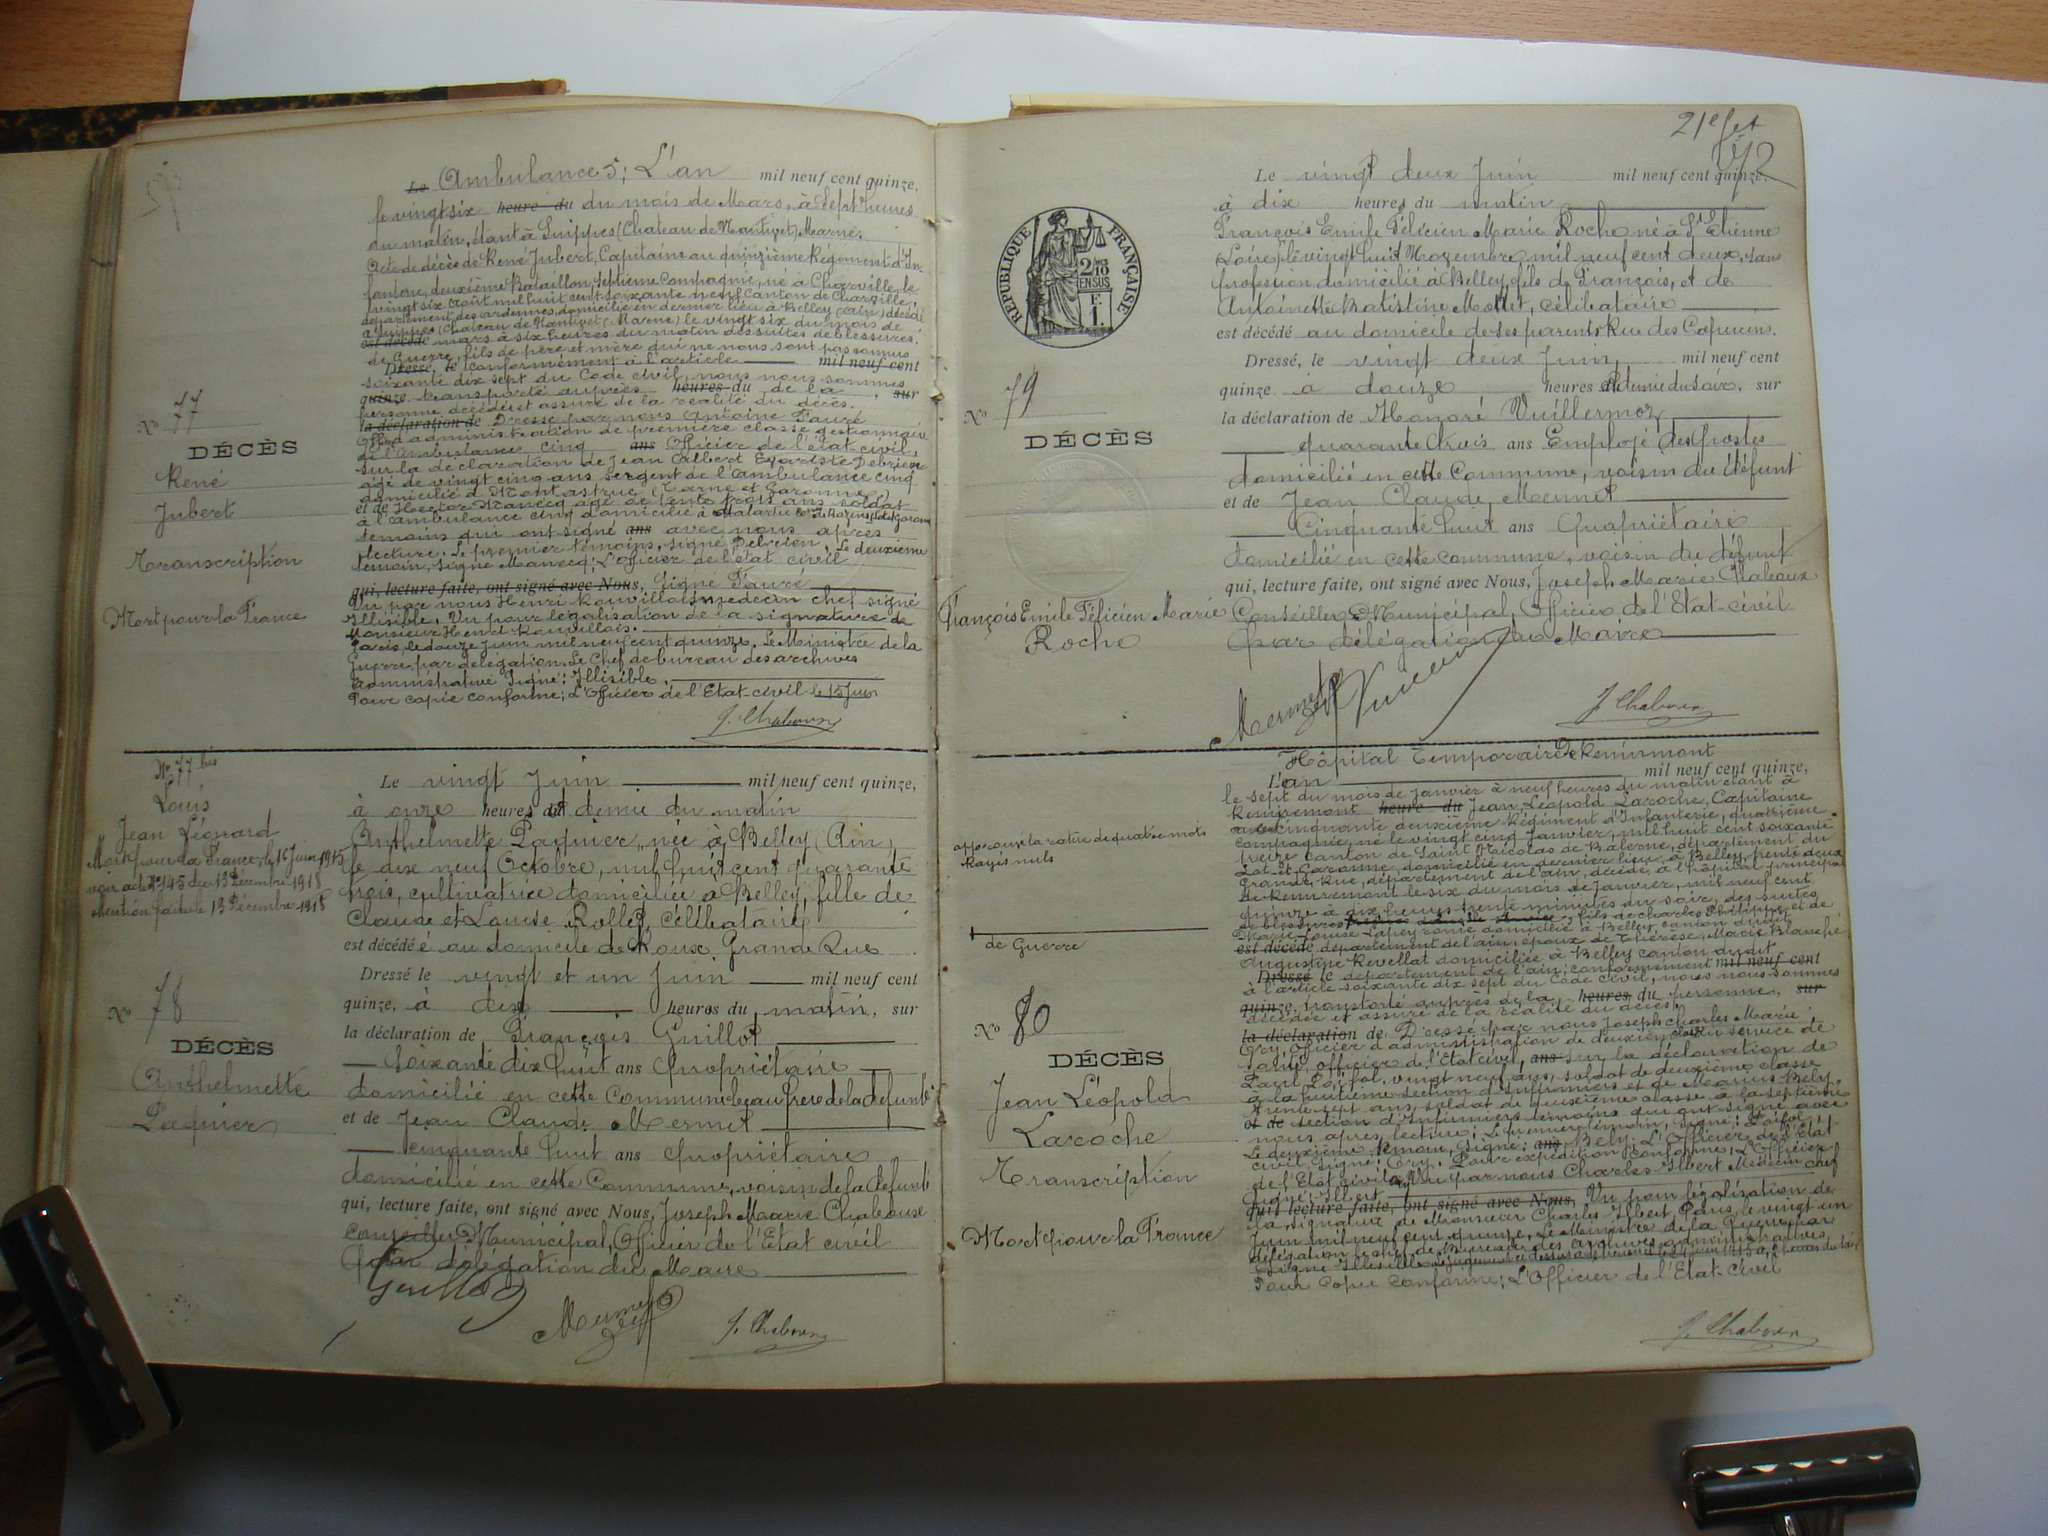 Le Ambulance 5; L'an mil neuf cent quinze,
le vingt six heure du du mois de Mars, à Sept heures
du matin, étant à Suippes (Chateau de Nantivet) Marne.
Acte de décès de René Jubert, Capitaine au quinzième Régiment d'In-
fanterie, deuxième Bataillon, Septième Compagnie, né à Charleville, le
vingt six Août mil huit cent soixante neuf Canton de Charleville,
département des ardennes, domicilié en dernier lieu à Belley (Ain) décédé
à Suippes (Chateau de Nantivet) (Marne) le vingt six du mois de
est décédé mars à six heures du matin des suites de blessures
de Guerre, fils de père et mère qui ne nous sont pas connus
Dressé, le conformément à l'article mil neuf cent
soixante dix sept du Code civil, nous nous sommes
quinze transporté auprès heures du de la sur
personne décédée et assuré de la réalité du décès.
la déclaration de Dressé par nous Antoine Fauré
Off. d'administration de première classe gestionnaire
de l'Ambulance cinq ans Officier de l'état-civil,
sur la déclaration de Jean Albert Evariste Debrien
agé de vingt cinq ans sergent de l'ambulance cinq
domicilié à Montastruc (Tarne et Garonne)
et de Hector Marecq agé de trente trois ans soldat
à l'ambulance cinq domicilié à
témoins qui ont signé ans avec nous après
lecture. Le premier témoins, signé Debrien. Le deuxième
témoin, signé Marecq; L'officier de l'état civil
qui, lecture faite, ont signé avec Nous, Signé Fauré
Vu par nous Henri Rouvillois médecin chef signé
Illisible. Vu pour légalisation de la signature de
Monsieur Henri Rouvillois.
Paris, le douze juin mil neuf cent quinze. Le Ministre de la
Guerre, par délégation. Le Chef de bureau des archives
administrative Signé: Illisible.
Pour copie conforme; L'Officier de l'Etat-civil le 15 Juin
J. Chaboux
No 77
DÉCÈS
René
Jubert
Transcription
Mort pour la France
No 77 bis
Louis
Jean Léonard
Mort pour la France, le 16 Juin 1915
voir acte No 145 du 13 Décembre 1918
Mention faite le 13 Décembre 1918
Le vingt Juin mil neuf cent quinze,
à onze heures et demie du matin
Anthelmette Paquier, née à Belley (Ain)
le dix neuf Octobre, mil huit cent quarante
trois, cultivatrice domiciliée à Belley, fille de
Claude et Louise Rollet, célibataire
est décédé e au domicile de Roux Grande Rue
Dressé le vingt et un Juin mil neuf cent
quinze, à dix heures du matin, sur
la déclaration de François Guillot
soixante dix huit ans Propriétaire
domicilié en cette Commune beau frère de la défunte
et de Jean Claude Mermet
cinquante huit ans Propriétaire
domicilié en cette Commune, voisin de la défunte
qui, lecture faite, ont signé avec Nous, Joseph Marie Chaboux
conseiller Municipal, Officier de l'Etat civil
par délégation du Maire
Guillot
Mermet
J. Chaboux
No 78
DÉCÈS
Anthelmette
Paquier
21e fet
72
RÉPUBLIQUE FRANÇAISE
2/10 EN SUS
No 79
DÉCÈS
François Emile Félicien Marie
Roche
Le vingt deux Juin mil neuf cent quinze,
à dix heures du matin
François Emile Félicien Marie Roche né à St Etienne
(Loire) le vingt huit Novembre mil neuf cent deux, sans
profession domicilié à Belley, fils de François, et de
Antoinette Batistine Mottet, célibataire
est décédé au domicile de ses parents Rue des Capucins.
Dressé, le vingt deux Juin mil neuf cent
quinze à douze heures et demie du soir, sur
la déclaration de Honoré Vuillermoz
quarante trois ans Employé des Postes
domicilié en cette Commune, voisin du défunt
et de Jean Claude Mermet
Cinquante huit ans Propriétaire
domicilié en cette commune, voisin du défunt
qui, lecture faite, ont signé avec Nous, Joseph Marie Chaboux
Conseiller Municipal, Officier de l'Etat-civil
par délégation du Maire
Mermet
J. Chaboux
approuvé la rature de quatre mots
rayés nuls
de Guerre
No 80
DÉCÈS
Jean Léopold
Laroche
Transcription
Mort pour la France
Hôpital Temporaire De Remiremont
L'an mil neuf cent quinze,
le sept du mois de janvier à neuf heures du matin étant à
Remiremont heure du Jean Léopold Laroche, Capitaine
au cinquante deuxième Régiment d'Infanterie, quatrième
compagnie, né le vingt cinq Janvier, mil huit cent soixante
canton de Saint Nicolas de Balerme, département du
Lot et Garonne, domicilié en dernier lieu à Belley, trente deux
Grande Rue, département de l'ain, décédé, à l'hôpital principal
de Remiremont le six du mois de Janvier, mil neuf cent
quinze à dix heures trente minutes du soir, des suites
de blessures fils de Charles Philippe et de
Marie Louise domicilié à Belley canton dudit
est décédé département de l'ain, époux de Thérèse, Marie Blanche
Augustine Revellat domiciliée à Belley canton dudit
Dressé le département de l'ain; conformément mil neuf cent
à l'article soixante dix sept du Code civil, nous nous sommes
quinze, transporté auprès de la heures du personne, sur
décédée et assuré de la réalité du décès.
la déclaration de Dressé par nous Joseph Charles Marie
Cry, Officier d'administration de deuxième classe du service de
Santé, officier de l'Etat civil, ans sur la déclaration de
vingt neuf ans, soldat de deuxième classe
à la huitième section d'infirmiers et de Marius Bely
trente sept ans, soldat de deuxième classe à la septième
et de section d'infirmiers témoins qui ont signé avec
nous après lecture; Le premier témoin, signé:
Le deuxième témoin, signé: ans Bely. L'Officier de l'Etat
civil signé: Cry. Pour expédition conforme, L'Officier
de l'Etat civil Vu par nous Charles Ilbert Médecin chef
signé: Ilbert
qui, lecture faite, ont signé avec Nous, Vu pour légalisation de
la signature de Monsieur Charles Ilbert, Paris, le vingt un
Juin mil neuf cent quinze. Le Ministre de la Guerre par
délégation le chef de Bureau des archives administratives,
Pour Copie Conforme; L'Officier de l'Etat-civil
J. Chaboux